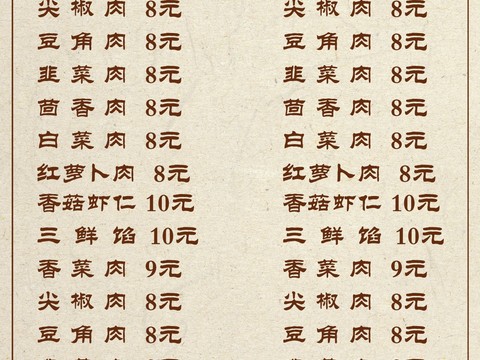 尖椒肉 8元 尖椒肉 8元
豆角肉 8元 豆角肉 8元
韭菜肉 8元 韭菜肉 8元
茴香肉 8元 茴香肉 8元
白菜肉 8元 白菜肉 8元
红萝卜肉 8元 红萝卜肉 8元
香菇虾仁 10元 香菇虾仁 10元
三鲜馅 10元 三鲜馅 10元
香菜肉 9元 香菜肉 9元
尖椒肉 8元 尖椒肉 8元
豆角肉 8元 豆角肉 8元